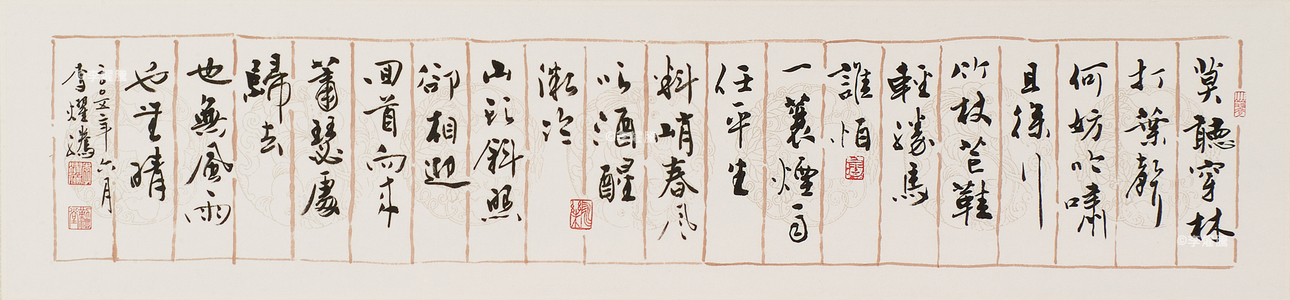 莫聽穿林
打葉聲
何妨吟嘯
且徐行
竹杖芒鞋
輕勝馬
誰怕
一蓑煙雨
任平生
料峭春風
吹酒醒
微冷
山頭斜照
卻相迎
回首向來
蕭瑟處
歸去
也無風雨
也無晴
二〇〇五年六月
李耀騰